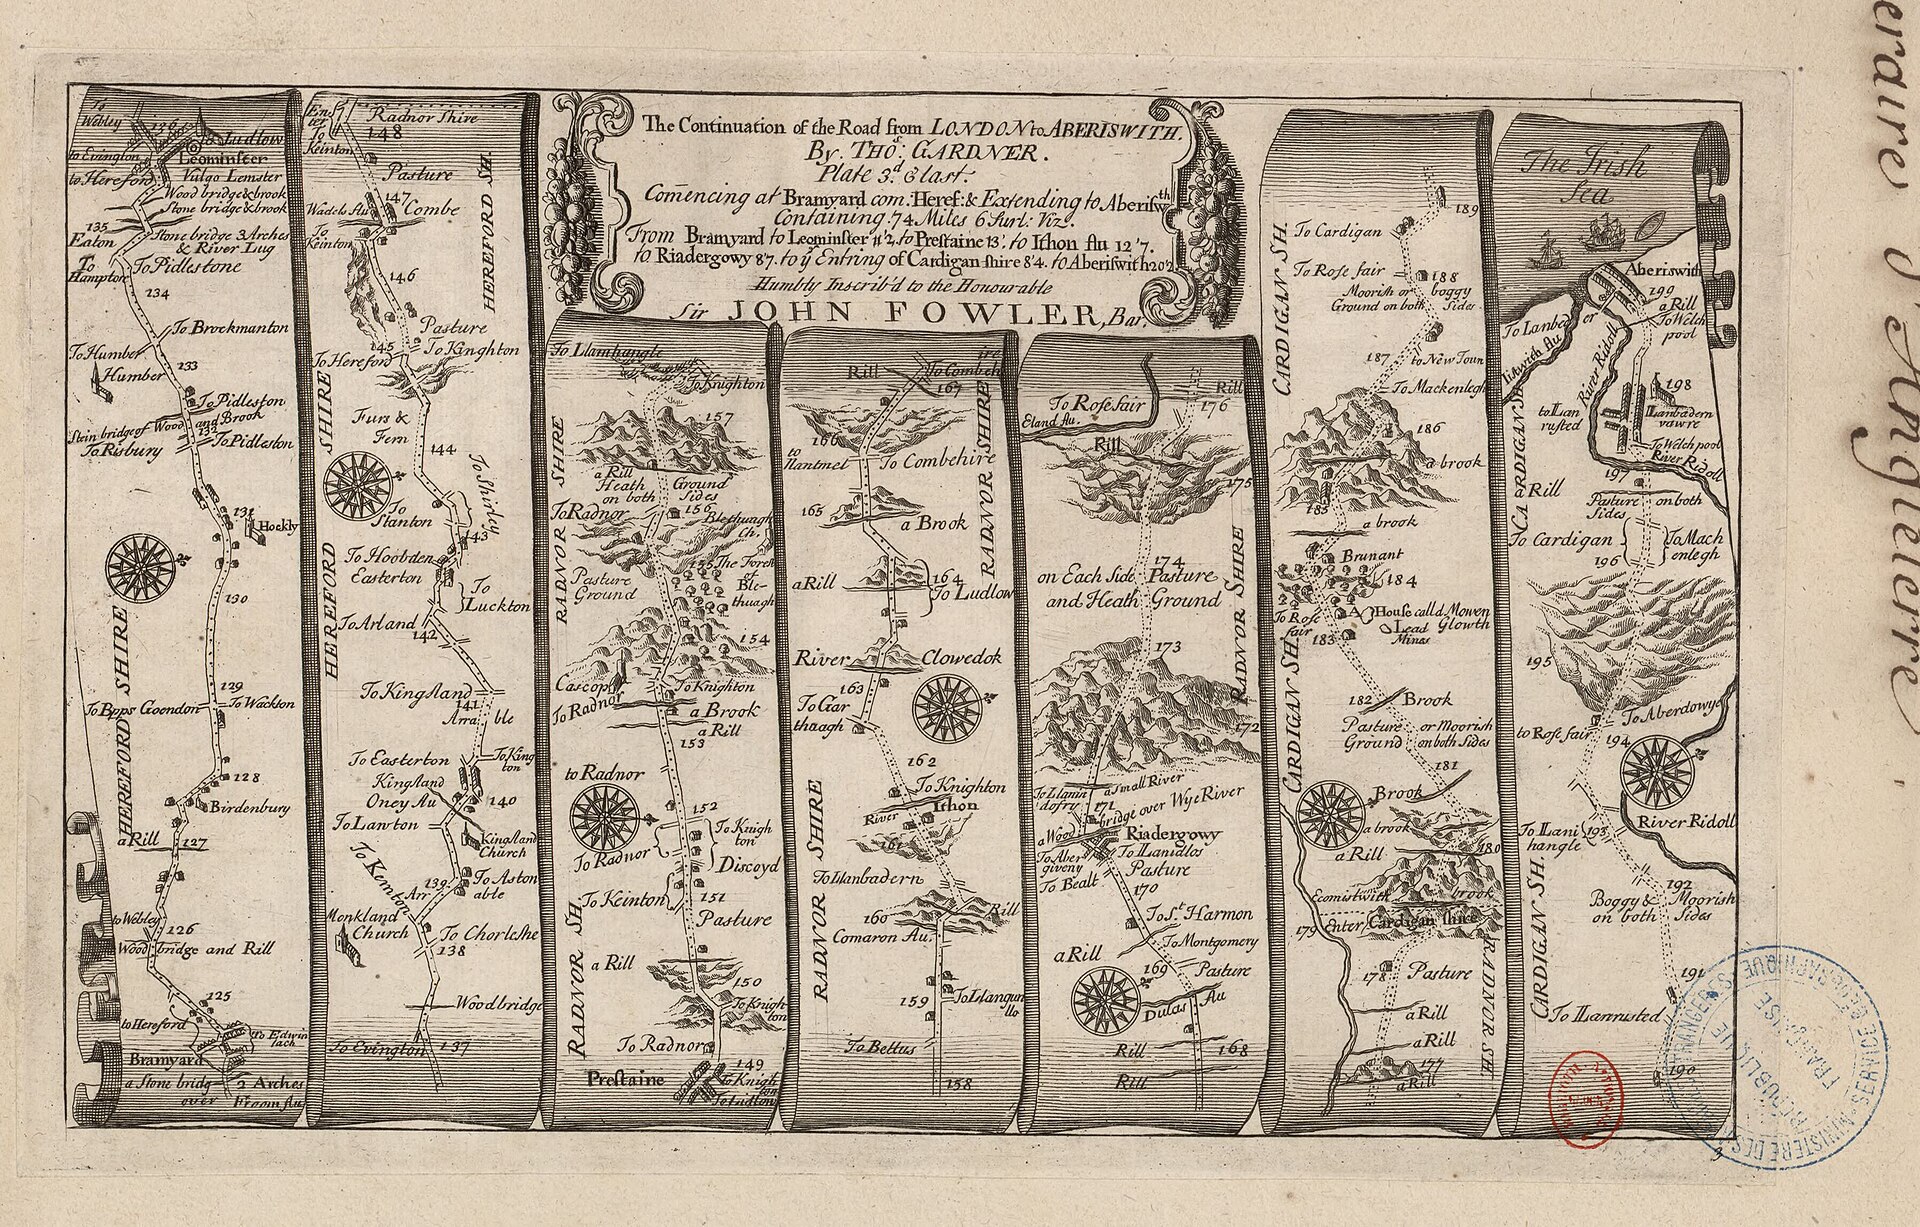 The Continuation of the Road from LONDON to ABERISWITH.
By THO: GARDNER.
Plate 3.d & last.
Comencing at Bramyard com. Heref: & Extending to Aberiswth
Containing 74 Miles 6 Furl: Viz.
From Bramyard to Leominster 11'2, to Prestaine 13'. to Ithon flu 12'7.
to Riadergowy 8'7. to ye Entring of Cardigan shire 8'4. to Aberiswith 20'2
Humbly Inscrib'd to the Honourable
Sir JOHN FOWLER, Bar.t
To
Webley
136
to Ludlow
to Evington
Leominster
to Hereford
Vulgo Lemster
Wood bridge & brook
Stone bridge & brook
135
Eaton
Stone bridge 3 Arches
& River Lug
To
Hampton
To Pidlestone
134
To Brockmanton
To Humber
133
Humber
To Pidleston
and Brook
Stein bridge of Wood
132
To Risbury
To Pidleston
131
Hockly
130
HEREFORD SHIRE
129
To Bpps Goendon
To Wackton
128
Birdenbury
a Rill
127
to Webley
126
Wood bridge and Rill
125
to Hereford
to Edwin
lach
Bramyard
a Stone bridg
2 Arches
over
Froom flu
Enter
Radnor Shire
To
Keinton
148
Pasture
HEREFORD SH.
147
Combe
To
Keinton
146
Pasture
145
To Hereford
To Knghton
Furs &
Fern
144
HEREFORD SHIRE
To Shirley
To
Stanton
143
To Hoobden
Easterton
To
Luckton
To Arland
142
To Kingsland
141
Arra ble
To Easterton
To King
ton
Kingsland
Oney Au
140
To Lawton
Kingsland
Church
To Kemton
139
To Aston
Arr able
Monkland
Church
To Chorlshe
138
Wood bridge
To Evington
137
To Llanhangle
To Knighton
157
a Rill
Heath Ground
on both Sides
RADNOR SHIRE
To Radnor
156
Blethuagh
Ch.
155
The Forest
of
Ble-
thuagh
Pasture
Ground
154
Cascop
To Knighton
To Radnor
a Brook
a Rill
153
to Radnor
152
To Knigh
ton
To Radnor
Discoyd
To Keinton
151
Pasture
RADNOR SH.
a Rill
150
To Knigh
ton
To Radnor
149
Prestaine
To Knigh
ton
To Ludlow
Rill
167
166
to
Nantmel
To Combehire
165
a Brook
RADNOR SHIRE
a Rill
164
To Ludlow
River
Clowedok
163
To Gar
thuagh
162
To Knighton
Ithon
River
161
RADNOR SHIRE
To Llanbadern
160
Rill
Comaron Au.
159
To Llangun
llo
To Bettus
158
Rill
To Rose fair
176
Eland flu.
Rill
175
174
on Each Side Pasture
and Heath Ground
RADNOR SHIRE
173
172
a Small River
To Llanin
dofry
171
bridge over Wye River
a Wood
Riadergowy
To Aber
giveny
To Llanidlos
To Bealt
Pasture
170
To St Harmon
a Rill
To Montgomery
169
Pasture
Dulas Au
Rill
168
Rill
189
CARDIGAN SH.
To Cardigan
To Rose fair
188
Moorish or boggy
Ground on both Sides
187
to New Toun
To Mackenlegh
186
a brook
185
a brook
Brunant
184
A House calld Mowen
Glowth
To Rose
fair
Lead
Mines
183
CARDIGAN SH.
182
Brook
Pasture or Moorish
Ground on both Sides
181
Brook
a brook
a Rill
180
Ecomistwith brook
179
Enter Cardigan shire
178
Pasture
RADNOR SH.
a Rill
a Rill
177
a Rill
The Irish
Sea
Aberiswith
199
a Rill
To Welch
pool
To Lanbad er
River Ridoll
198
to Llan
rusted
Llanbadern
vawre
To Welch pool
River Ridoll
197
CARDIGAN SH.
a Rill
Pasture on both
Sides
To Cardigan
To Mach
enlegh
196
195
To Aberdowye
to Rose fair
194
River Ridoll
To Llani
hangle
193
192
Boggy & Moorish
on both Sides
CARDIGAN SH.
191
To Llanrusted
190
3
d'Angleterre